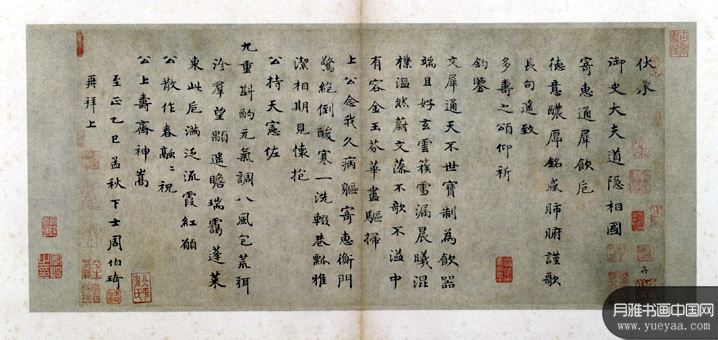 伏承
御史大夫道隱相國
寄惠通犀飲卮
德意醲厚銘感肺腑謹歌
長句遙致
多壽之頌仰祈
鈞鑒
文犀通天不世寶制為飲器
端且好玄雲簇雪漏晨曦混
樸溫然蔚文藻不歌不溢中
有容金玉芬華盡驅掃
上公念我久病軀寄惠衡門
驚絕倒酸寒一洗輟巷瓢雅
潔相期見懷抱
公持天憲佐
九重斟酌元氣調八風包荒弭
沴羣望顒遙瞻瑞靄蓬萊
東此卮滿泛流霞紅願
公散作春融融祝
公上壽齊神嵩
至正乙巳孟秋下士周伯琦
再拜上
月雅书画中国网
www.yueyaa.com